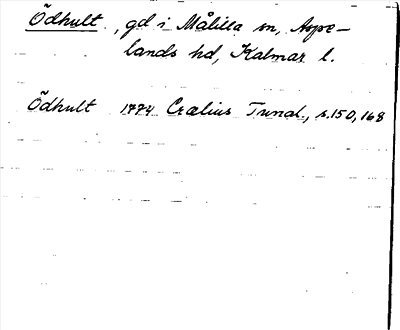 Ödhult, gd i Målilla sn, Aspe-
lands hd, Kalmar l.
Ödhult 1774 Crælius Tund., s.150, 168